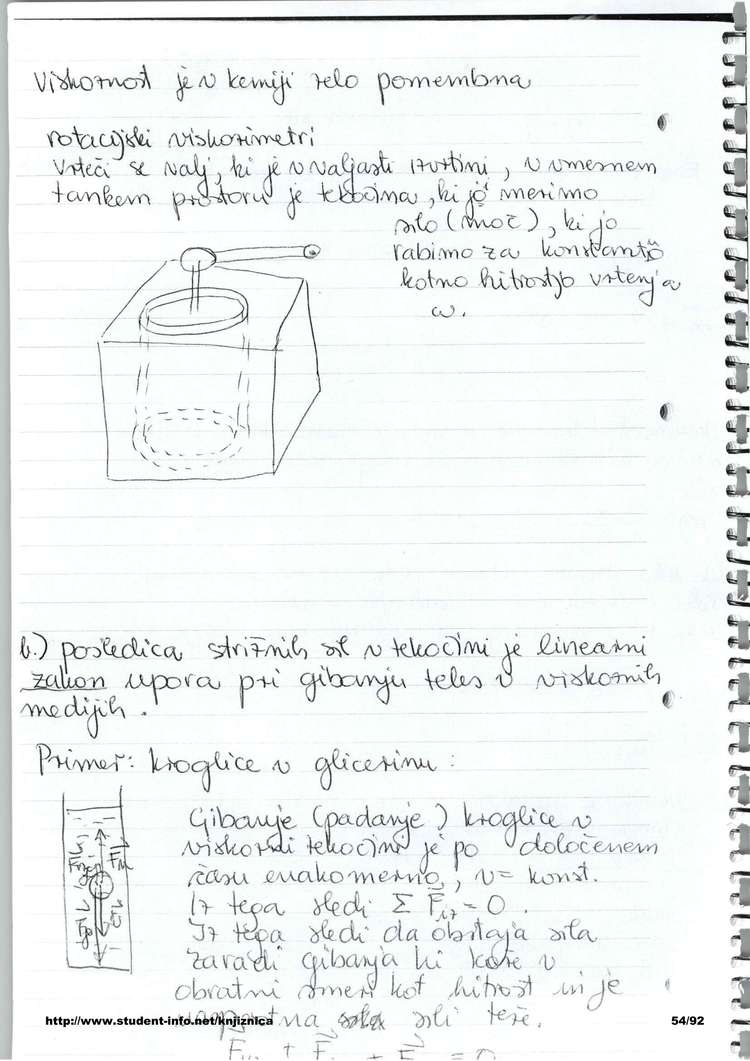 Viskoznost je v kemiji zelo pomembna
rotacijski viskozimetri
Vrteči se valj, ki je v valjasti izvrtini, v vmesnem
tankem prostoru je tekočina, ki jo merimo
silo (moč), ki jo
rabimo za konstantno
kotno hitrostjo vrtenja
ω.
b.) posledica strižnih sil v tekočini je linearni
zakon upora pri gibanju teles v viskoznih
medijih.
Primer: kroglice v glicerinu:
Gibanje (padanje) kroglice v
viskozni tekočini je po določenem
času enakomerno, v = konst.
Iz tega sledi Σ F = 0.
Iz tega sledi da obstaja sila
zaradi gibanja ki kaže v
obratni smeri kot hitrost in je
nasprotna sili teže.
http://www.student-info.net/knjiznica
54/92